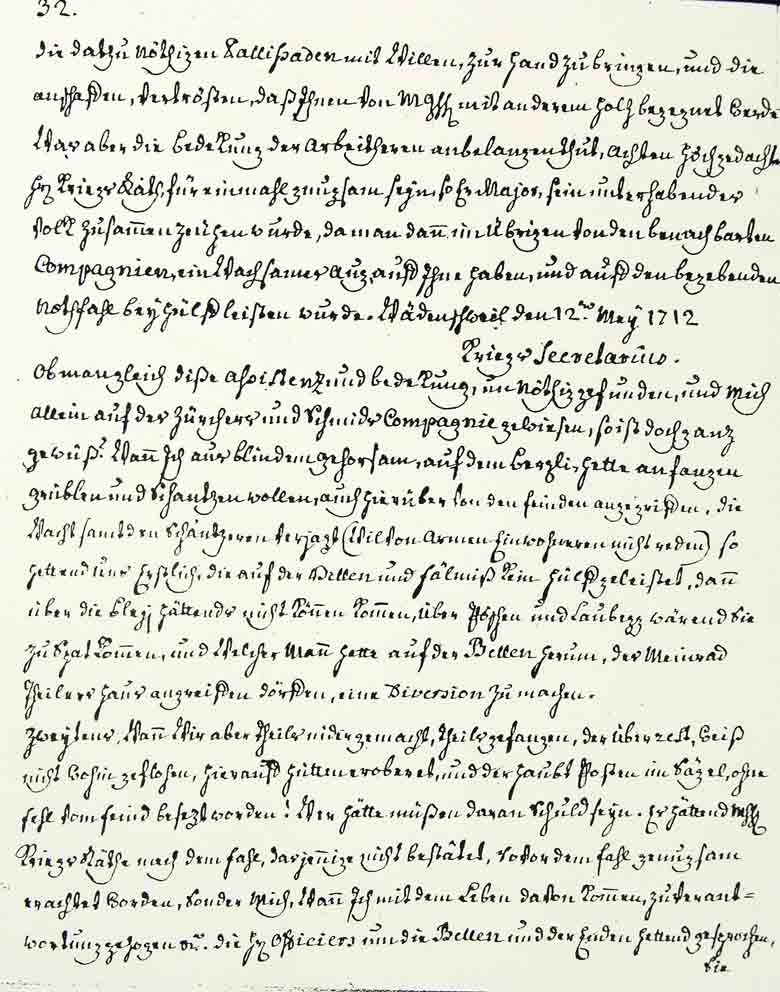 32.
die datzu nöthigen Pallisaden mit Willen, zur hand zu bringen, und die
anschaffen, vertrösten, daß Ihnen von MGhh mit anderem holtz begegnet werde
Was aber die bedekung der Arbeitheren anbelangen thut, achten hochgedachte
hh Kriegs Räth, für einmahl gnugsam seyn, so Er Major, sein unterhabendes
Volk zusammen zeuhen wurde, da man dann im übrigen von den benachbarten
Compagnien, ein Wachsames Aug, auff Ihne haben, und auff den begebenden
Nothfahl beyhülff leisten wurde. Wädenschweil den 12ten Mey 1712
Kriegs Secretarius.
Ob man gleich diße assistenz und bedekung, unnöthig gefunden, und mich
allein auf des Zürchers und Schmids Compagnie gewiesen, so ist doch ganz
gewüß, Wann Ich aus blindem gehorsam, auf dem Bergli, hette anfangen
grüblen und Schantzen wollen, auch hierüber von den feinden angegriffen, die
Wacht samt den Schantzeren verjagt (Wil von Armen Einwohneren nicht reden) so
hettend uns Erstlich, die auf der Bellen und fälmiß kein hülff geleistet, dann
über die Egg hättends nicht können kommen, über Röschen und Laubegg wärend Sie
zu Spat kommen, und Welcher Mann hette auf der Bellen herum, des Meinrad
Theilers haus angreiffen dörffen, eine Diversion zu machen.
Zweytens, Wann Wir aber theils nider gemacht, theils gefangen, der überrest, Weiß
nicht Wohin geflohen, hierauff hütten eroberet, und der haubt Posten im Sägel, ohne
fehl vom feind besezt worden! Wer hätte müßen daran Schuld seyn. Er hättend MGhh
Kriegs Räthe nach dem fahl, das jennige nicht bestätet, so vor dem fahl genugsam
erachtet worden, Sonder Mich, Wann Ich mit dem Leben davon kommen, zu verant=
wortung gezogen &c. die hh Officiers um die Bellen und der Enden hettend gesprochen,
Sie